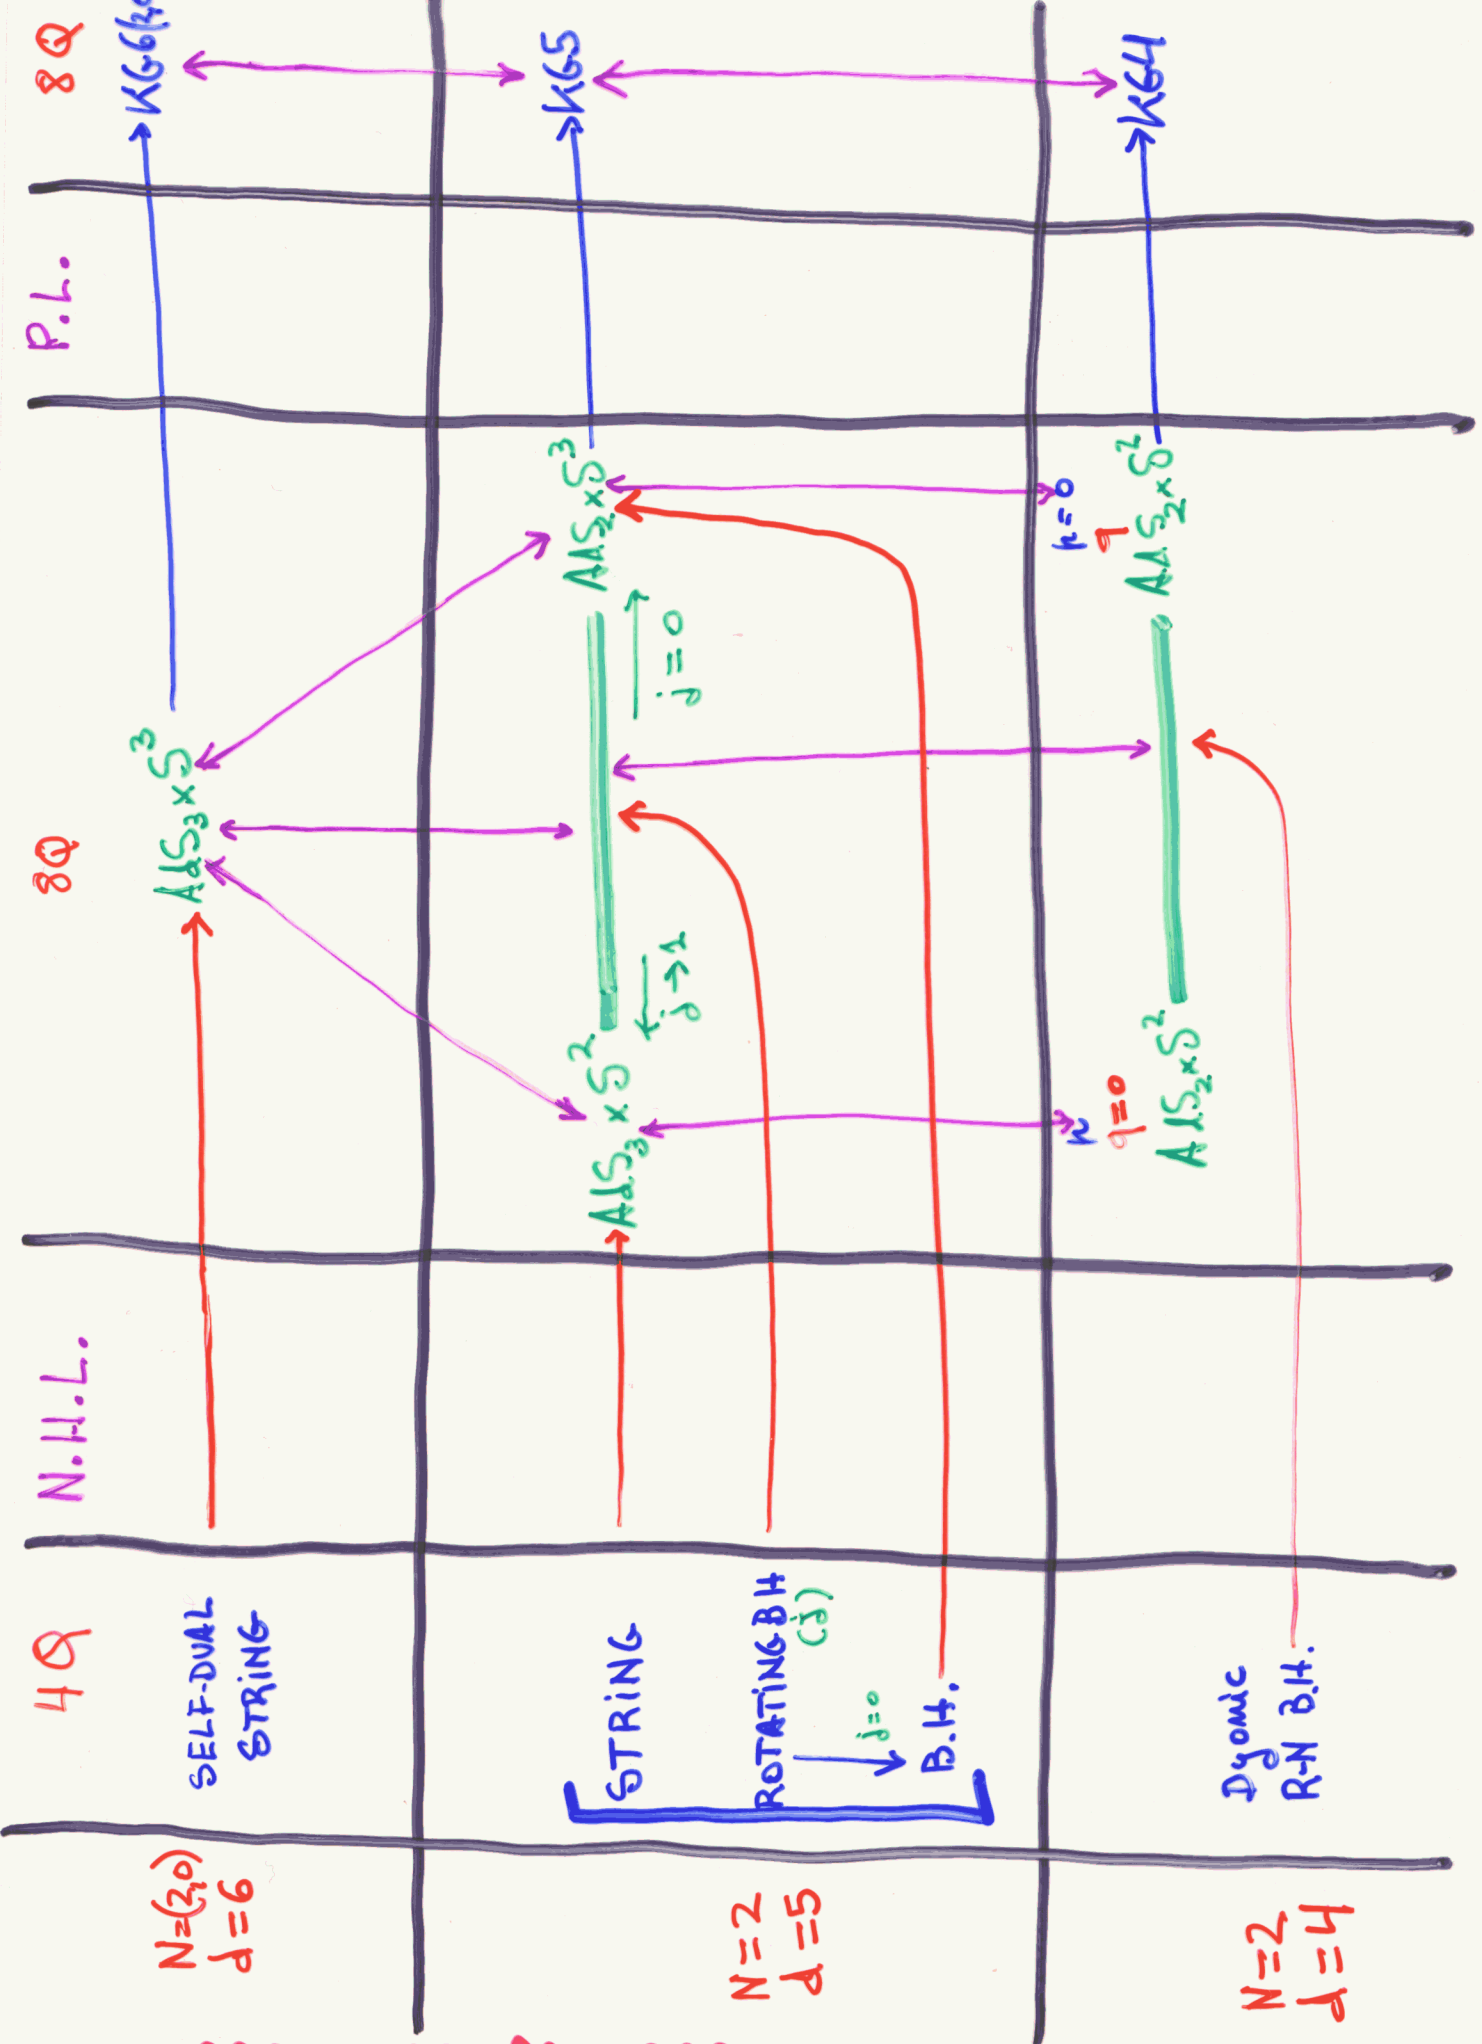 4Q N.H.L. 8Q P.L. 8Q
N=(2,0)
d=6
SELF-DUAL
STRING
AdS3×S3
KG6(2,0
N=2
d=5
STRING
ROTATING BH
(j)
j=0
B.H.
AdS3×S2
j→1
j=0
AdS2×S3
KG5
N=2
d=4
Dyonic
R-N B.H.
p
q=0
AdS2×S2
p=0
q
AdS2×S2
KG4